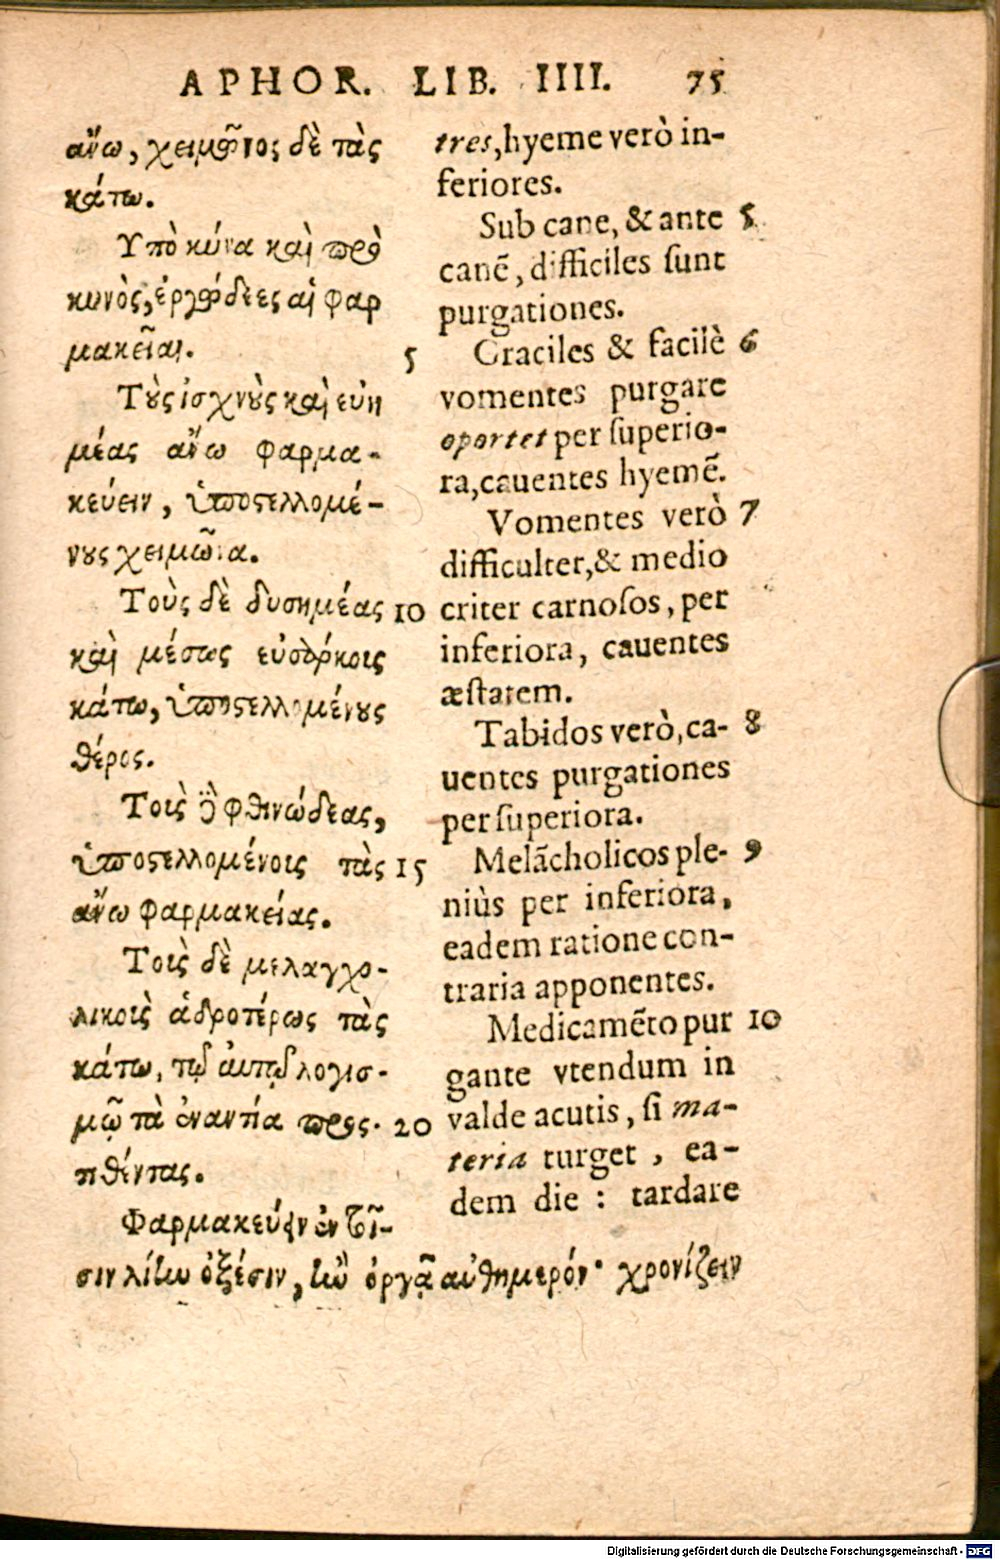 APHOR. LIB. IIII. 75
ἄνω, χειμῶνος δὲ τὰς
κάτω.
Υπὸ κύνα καὶ πρὸ
κυνὸς, ἐργώδεες αἱ φαρ
μακεῖαι. 5
Τοὺς ἰσχνοὺς καὶ εὐη
μέας ἄνω φαρμα-
κεύειν, ὑποστελλομέ-
νους χειμῶνα.
Τοὺς δὲ δυσημέας 10
καὶ μέσως εὐσάρκοις
κάτω, ὑποστελλομένους
θέρος.
Τοῖς δὲ φθινώδεας,
ὑποστελλομένοις τὰς 15
ἄνω φαρμακείας.
Τοῖς δὲ μελαγχο-
λικοῖς ἁδροτέρως τὰς
κάτω, τῷ αὐτῷ λογισ-
μῷ τὰ ἐναντία προς- 20
τιθέντας.
Φαρμακεύειν ἐν τοῖ-
σιν λίην ὀξέσιν, ἢν ὀργᾷ αὐθημερόν· χρονίζειν
tres, hyeme verò in-
feriores.
Sub cane, & ante 5
canē, difficiles sunt
purgationes.
Graciles & facilè 6
vomentes purgare
oportet per superio-
ra, cauentes hyemē.
Vomentes verò 7
difficulter, & medio
criter carnosos, per
inferiora, cauentes
æstatem.
Tabidos verò, ca- 8
uentes purgationes
per superiora.
Melācholicos ple- 9
niùs per inferiora,
eadem ratione con-
traria apponentes.
Medicamēto pur 10
gante vtendum in
valde acutis, si ma-
teria turget, ea-
dem die : tardare
Digitalisierung gefördert durch die Deutsche Forschungsgemeinschaft - DFG